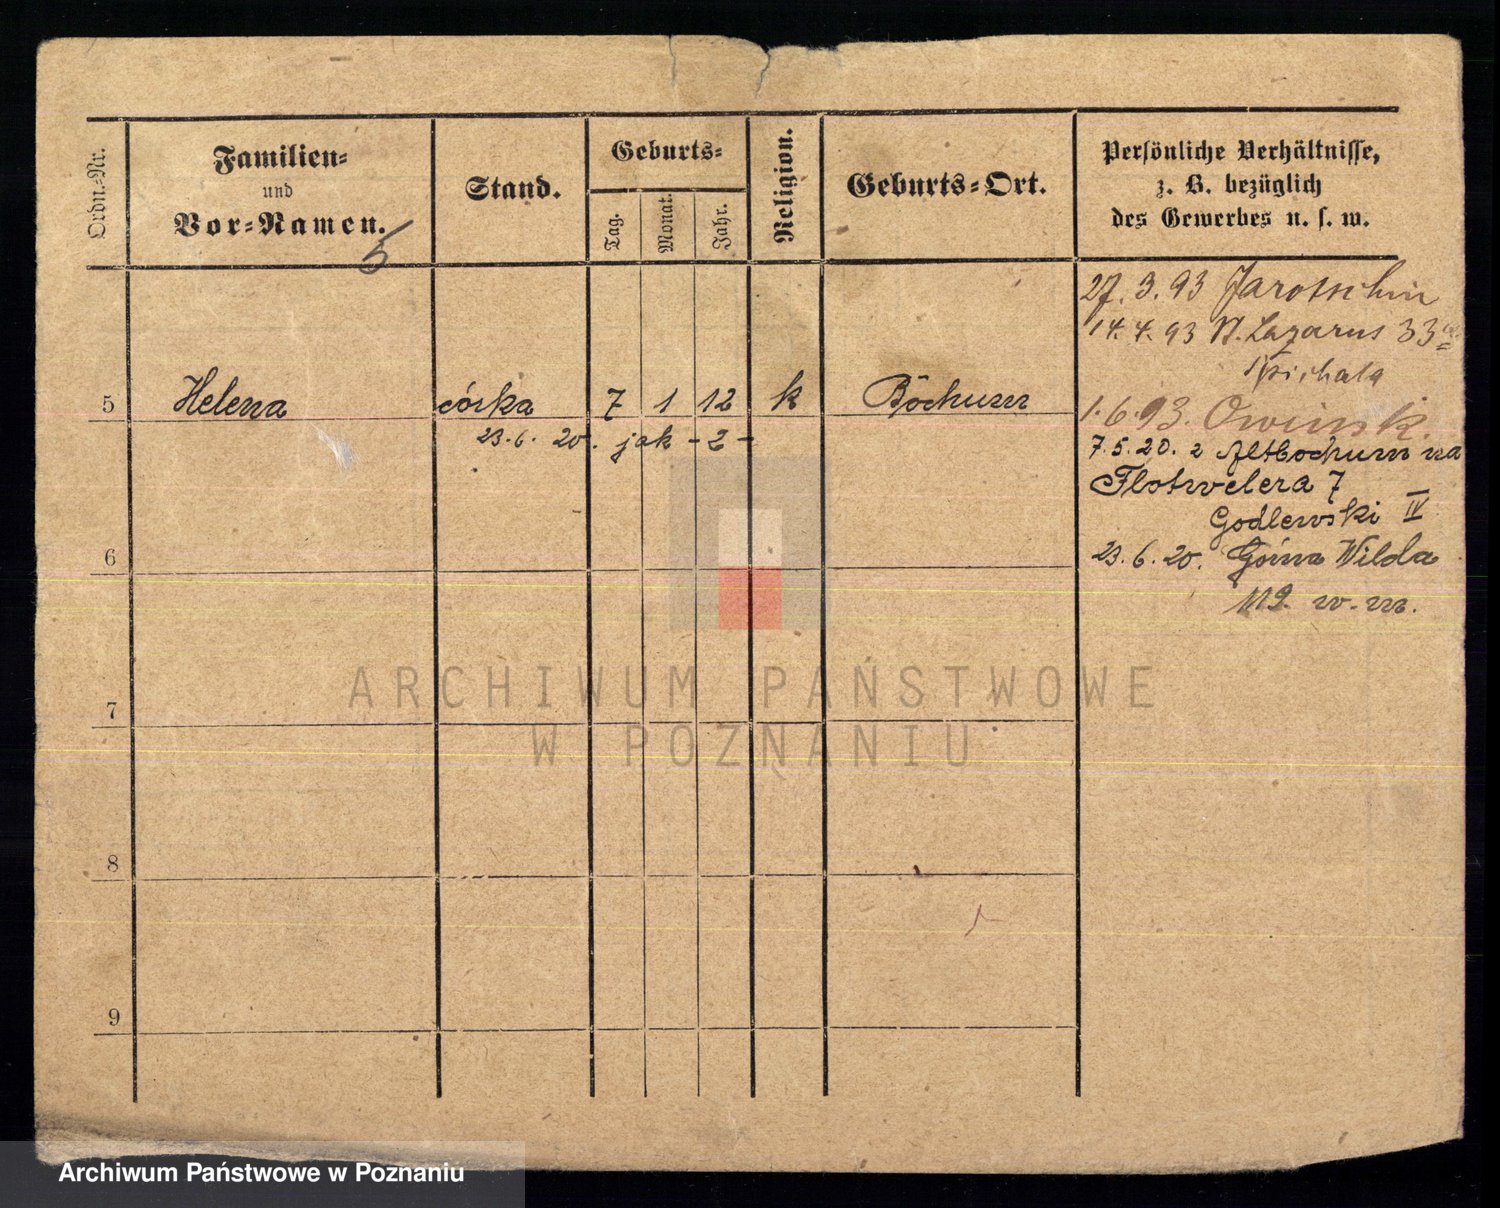 Ordn.-Nr.
Familien-
und
Vor-Namen.
5
Stand.
Geburts-
Tag.
Monat.
Jahr.
Religion.
Geburts-Ort.
Persönliche Verhältnisse,
z. B. bezüglich
des Gewerbes u. s. w.
27. 3. 93 Jarotschin
14. 4. 93 St. Lazarus 33a
1. 6. 93. Owinsk.
5 Helena córka 7 1 12 k Bochum
23. 6. 20. jak - 2 -
7. 5. 20. z Altbochum na
Flotwelera 7
Godlewski IV
23. 6. 20. Górna Wilda
119. w. m.
6
7
8
9
ARCHIWUM PAŃSTWOWE
W POZNANIU
Archiwum Państwowe w Poznaniu